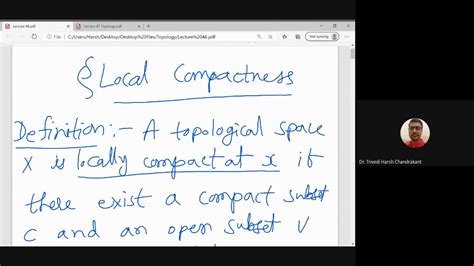 Lecture 46.pdf
Lecture 47 Topology.pdf
C:/Users/Harsh/Desktop/Desktop%20files/Topology/Lecture%2046.pdf
§ Local Compactness
Definition:- A topological space
X is locally compact at x if
there exist a compact subset
C and an open subset V
Dr. Trivedi Harsh Chandrakant